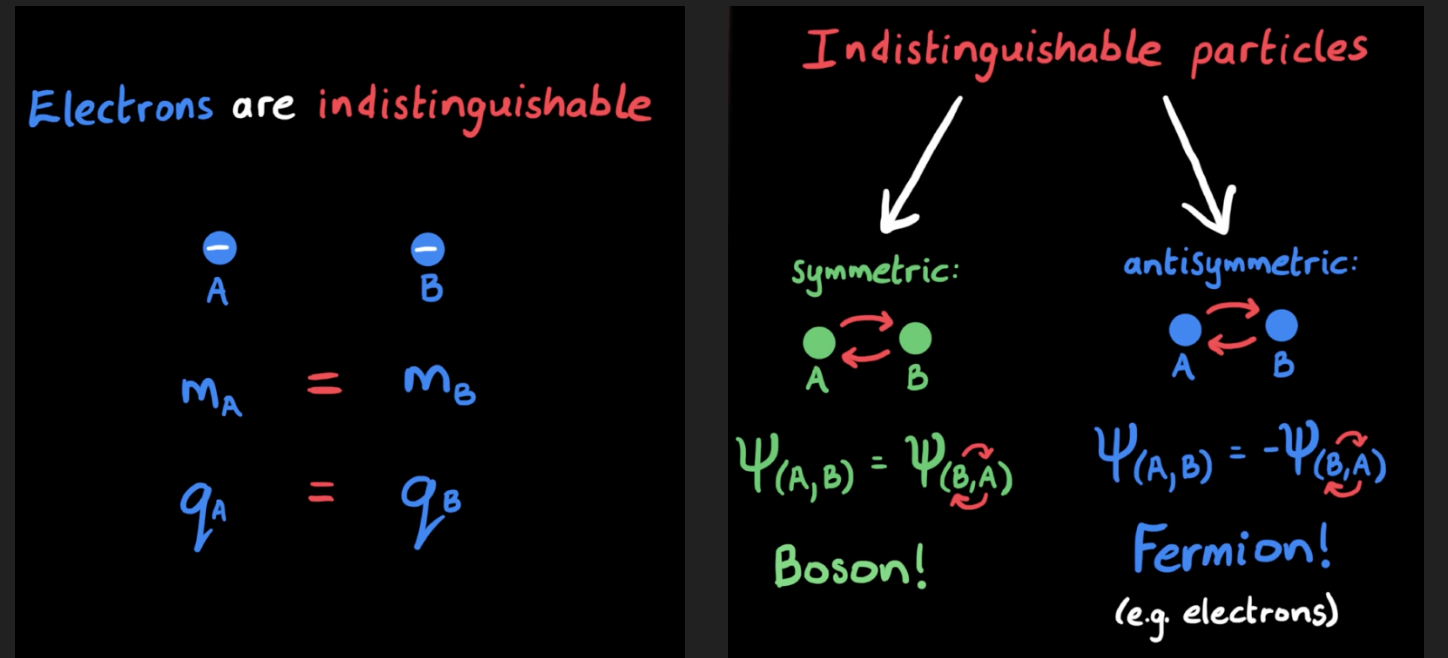 Electrons are indistinguishable
− −
A B
m_A = m_B
q_A = q_B
Indistinguishable particles
symmetric:
A B
Ψ(A,B) = Ψ(B,A)
Boson!
antisymmetric:
A B
Ψ(A,B) = -Ψ(B,A)
Fermion!
(e.g. electrons)